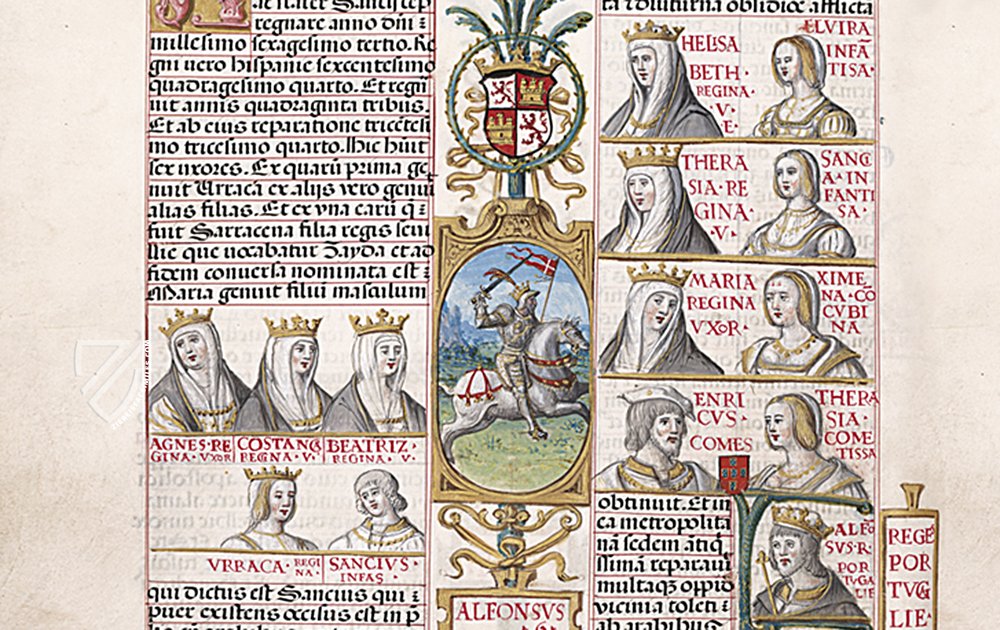 regnare anno dñi
millesimo sexagesimo tertio. Re
gni vero hispanie sexcentesimo
quadragesimo quarto. Et regn
uit annis quadraginta tribus.
Et ab eius reparatione tricētesi
mo tricesimo quarto. Hic hūit
sex uxores. Ex quarū prima ge
nuit Urracā ex alijs vero genuī
alias filias. Et ex vna earū q̄
fuit Sarracena filia regis seui
llie que vocabatur Zayda et ad
fidem conuersa nominata est
Maria genuit filiū masculum
AGNES·RE
GINA·VXOR
COSTANÇ
REGNA·V·
BEATRIZ·
REGINA·V·
VRRACA·REGI
NA·
SANCIVS·
INFAS·
qui dictus est Sancius qui
puer existens occisus est in p̄
ALFONSVS
·6·
ta et diuturna obsidiōe afflicta
HELISA
BETH·
REGINA·
·V·
·E·
ELVIRA
INFĀ
TISA·
THERA
SIA·RE
GINA·
·V·
SANCI
A·IN
FANTI
SA·
MARIA·
REGINA
VXOR·
XIME
NA·CO
CVBI
NA
ENRI
CVS·
COMES
THERA
SIA·
COME
TISSA·
obtinuit. Et in
ea metropolita
nā sedem antiq̄
issimā reparauit
multaq̨ oppid
vicinia toleti
ALFO
SVS·R·
POR
TVGA
LIE·
REGĒS
POR
TVG
LIE·